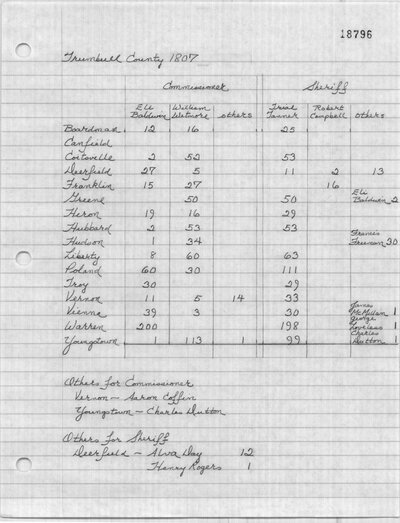 18796
Trumbull County 1807
Commissioner Sheriff
Eli Baldwin William Wetmore others Trial Tanner Robert Campbell others
Boardman 12 16 25
Canfield
Coitsville 2 52 53
Deerfield 27 5 11 2 13
Franklin 15 27 16
Greene 50 50 Eli Baldwin 2
Heron 19 16 29
Hubbard 2 53 53
Hudson 1 34 Francis Freeman 30
Liberty 8 60 63
Poland 60 30 111
Troy 30 29
Vernon 11 5 14 33
Vienna 39 3 30 James McMillan 1
Warren 200 198 George Loveless 1
Youngstown 1 113 1 99 Charles Dutton 1
Others for Commissioner
Vernon - Aaron Coffin
Youngstown - Charles Dutton
Others for Sheriff
Deerfield - Alva Day 12
Henry Rogers 1